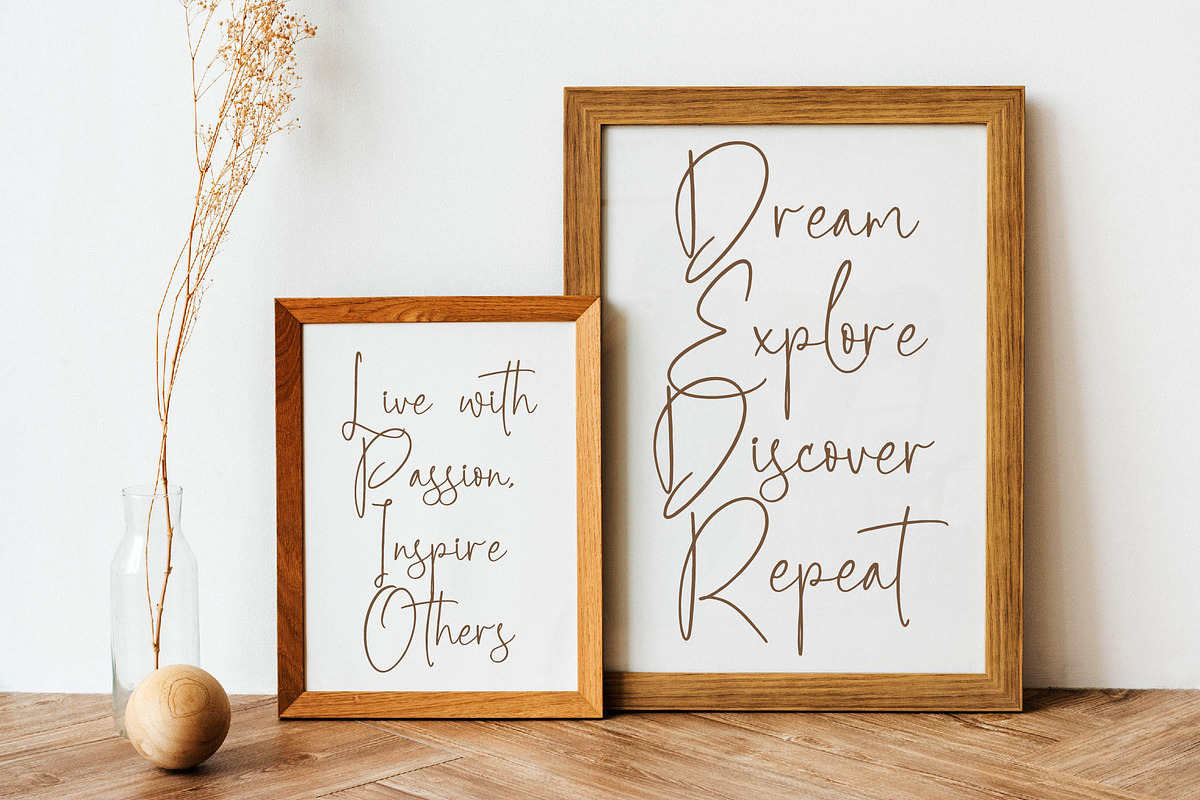 Live with
Passion,
Inspire
Others
Dream
Explore
Discover
Repeat